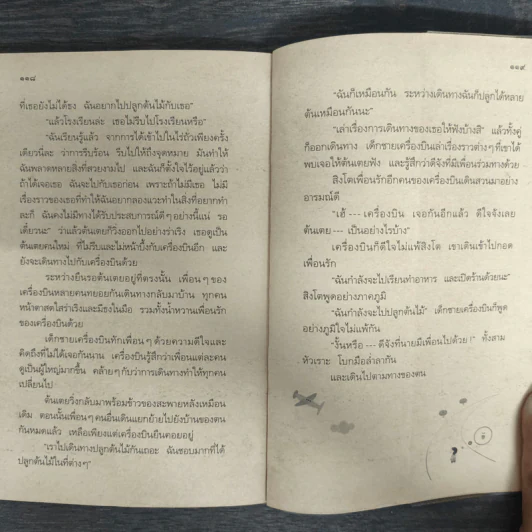 ๑๑๘
ที่เธอยังไม่ได้ธง ฉันอยากไปปลูกต้นไม้กับเธอ"
"แล้วโรงเรียนล่ะ เธอไม่รีบไปโรงเรียนหรือ"
"ฉันเรียนรู้แล้ว จากการได้เข้าไปในไร่ถั่วเพียงครั้ง
เดียวนี่ละ ว่าการรีบร้อน รีบไปให้ถึงจุดหมาย มันทำให้
ฉันพลาดหลายสิ่งที่สวยงามไป และฉันก็ตั้งใจไว้อยู่แล้วว่า
ถ้าได้เจอเธอ ฉันจะไปกับเธอก่อน เพราะถ้าไม่มีเธอ ไม่มี
เรื่องราวของเธอที่ทำให้ฉันอยากลองแวะทำในสิ่งที่อยากทำ
ละก็ ฉันคงไม่มีทางได้รับประสบการณ์ดีๆ อย่างนี้แน่ รอ
เดี๋ยวนะ" ว่าแล้วต้นเตยก็วิ่งออกไปอย่างร่าเริง เธอดูเป็น
ต้นเตยคนใหม่ ที่ไม่รีบและไม่หน้าบึ้งกับเครื่องบินอีก และ
ยังจะเดินทางไปกับเครื่องบินด้วย
ระหว่างยืนรอต้นเตยอยู่ที่ตรงนั้น เพื่อนๆ ของ
เครื่องบินหลายคนทยอยกันเดินทางกลับมาบ้าน ทุกคน
หน้าตาสดใสร่าเริงและมีธงในมือ รวมทั้งน้ำหวานเพื่อนรัก
ของเครื่องบินด้วย
เด็กชายเครื่องบินทักเพื่อนๆ ด้วยความดีใจและ
คิดถึงที่ไม่ได้เจอกันนาน เครื่องบินรู้สึกว่าเพื่อนแต่ละคน
ดูเป็นผู้ใหญ่มากขึ้น คล้ายๆ กับว่าการเดินทางทำให้ทุกคน
เปลี่ยนไป
ต้นเตยวิ่งกลับมาพร้อมข้าวของสะพายหลังเหมือน
เดิม ตอนนั้นเพื่อนๆ คนอื่นเดินแยกย้ายไปยังบ้านของตน
กันหมดแล้ว เหลือเพียงแต่เครื่องบินยืนคอยอยู่
"เราไปเดินทางปลูกต้นไม้กันเถอะ ฉันชอบมากที่ได้
ปลูกต้นไม้ในที่ต่างๆ"
๑๑๙
"ฉันก็เหมือนกัน ระหว่างเดินทางฉันก็ปลูกได้หลาย
ต้นเหมือนกันนะ"
"เล่าเรื่องการเดินทางของเธอให้ฟังบ้างสิ" แล้วทั้งคู่
ก็ออกเดินทาง เด็กชายเครื่องบินเล่าเรื่องราวต่างๆ ที่เขาได้
พบเจอให้ต้นเตยฟัง และรู้สึกว่าดีจังที่มีเพื่อนร่วมทางด้วย
สิงโตเพื่อนรักอีกคนของเครื่องบินเดินสวนมาอย่าง
อารมณ์ดี
"เฮ้ --- เครื่องบิน เจอกันอีกแล้ว ดีใจจังเลย
ต้นเตย --- เป็นอย่างไรบ้าง"
เครื่องบินก็ดีใจไม่แพ้สิงโต เขาเดินเข้าไปกอด
เพื่อนรัก
"ฉันกำลังจะไปเรียนทำอาหาร และเปิดร้านด้วยนะ"
สิงโตพูดอย่างภาคภูมิ
"ฉันกำลังจะไปปลูกต้นไม้" เด็กชายเครื่องบินก็พูด
อย่างภูมิใจไม่แพ้กัน
"งั้นหรือ --- ดีจังที่นายมีเพื่อนไปด้วย !" ทั้งสาม
หัวเราะ โบกมือลาลากัน
และเดินไปตามทางของตน